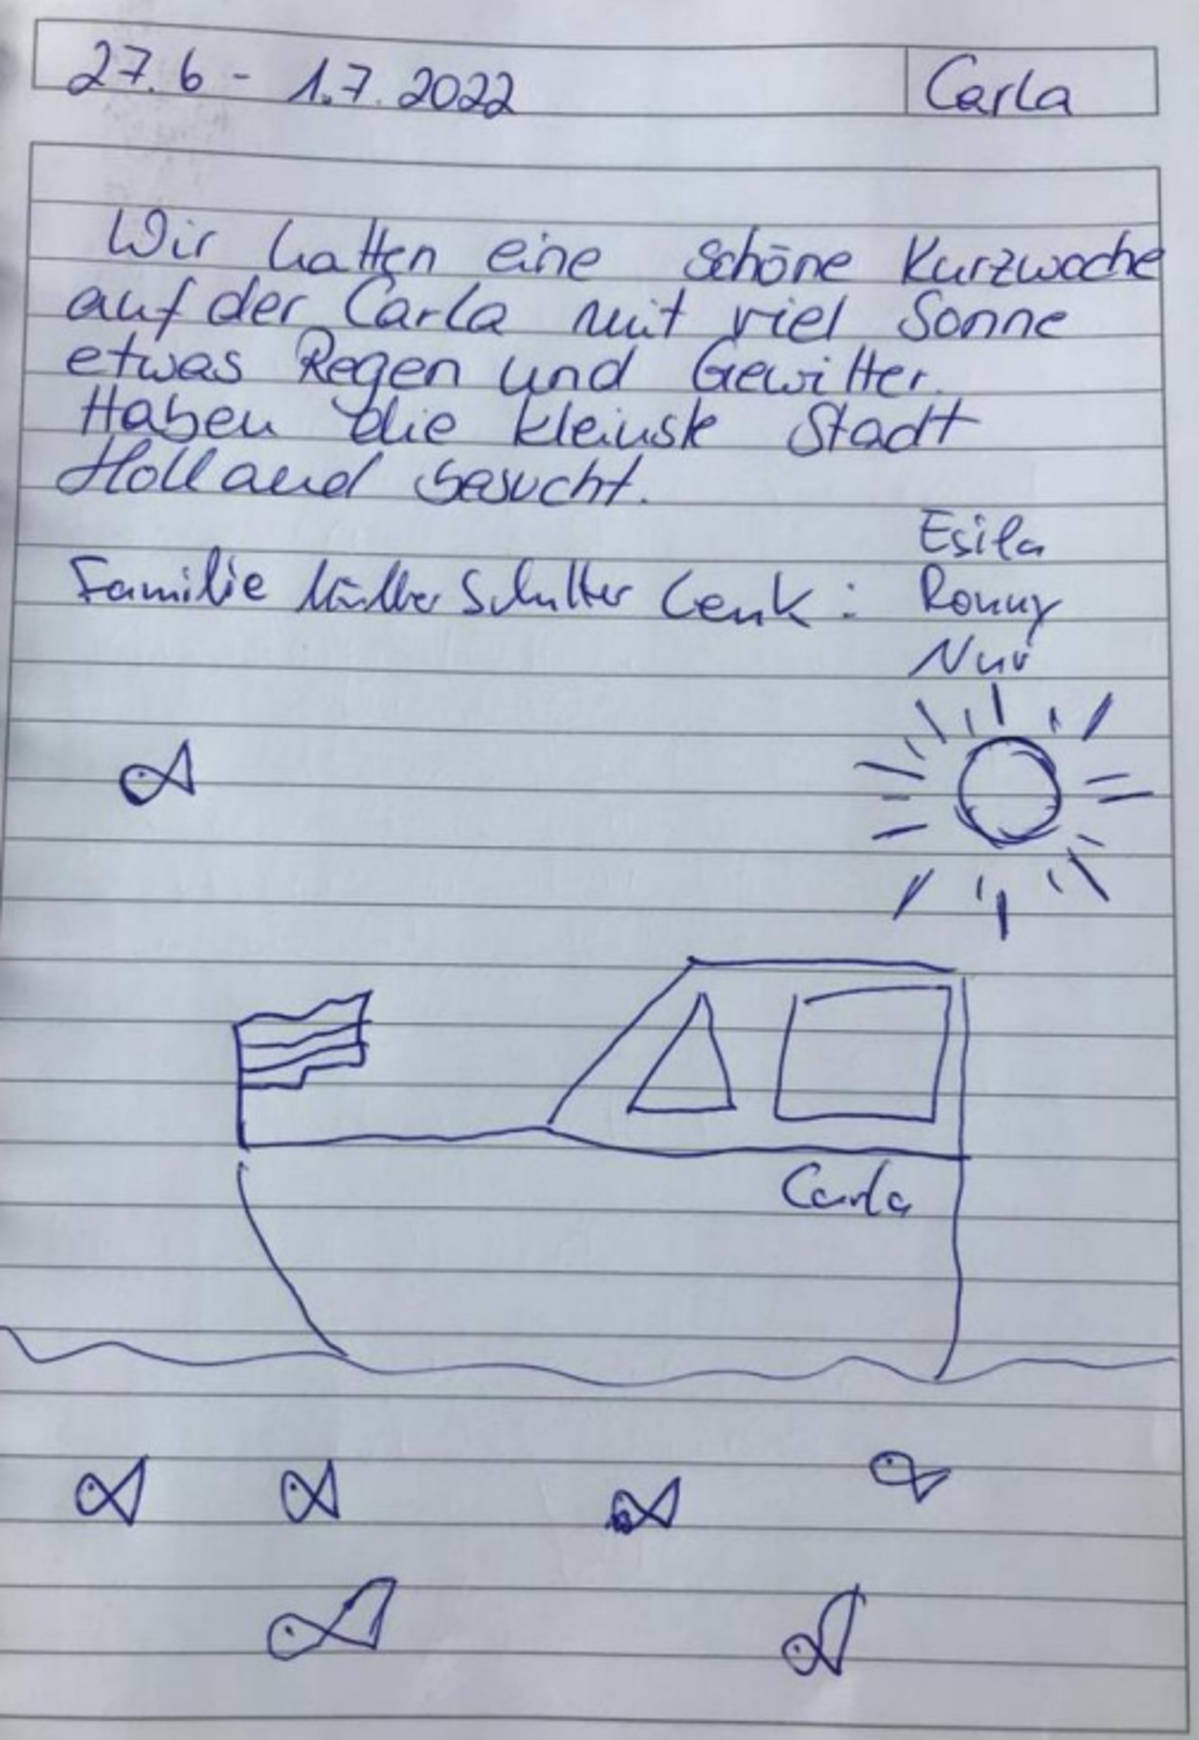 27.6 - 1.7.2022 Carla
Wir hatten eine schöne Kurzwoche
auf der Carla mit viel Sonne
etwas Regen und Gewitter.
Haben die kleinste Stadt
Holland besucht.
Esila
Familie Cenk: Ronny
Nur
Carla